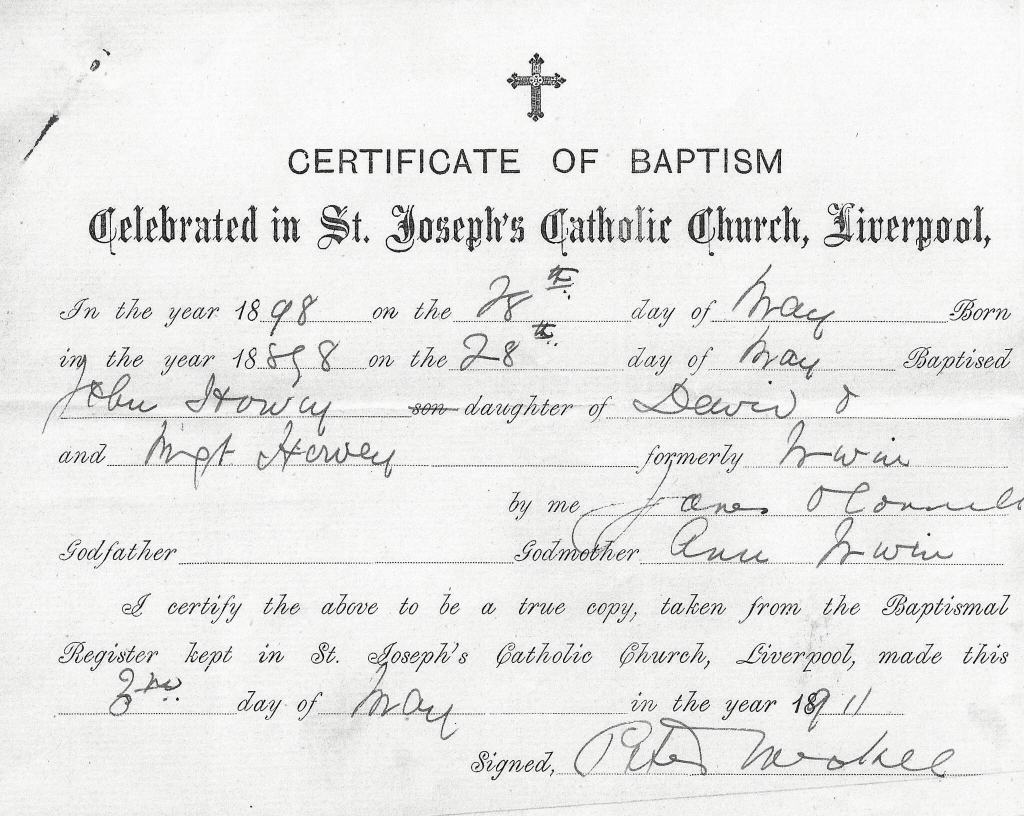 CERTIFICATE OF BAPTISM
Celebrated in St. Joseph's Catholic Church, Liverpool,
In the year 1898 on the 28th day of May Born
in the year 18898 on the 28th day of May Baptised
John Howey son daughter of David &
and Mgt Hovey formerly Irwin
by me James O'Connell
Godfather Godmother Ann Irwin
I certify the above to be a true copy, taken from the Baptismal
Register kept in St. Joseph's Catholic Church, Liverpool, made this
2nd day of May in the year 1911
Signed, Peter